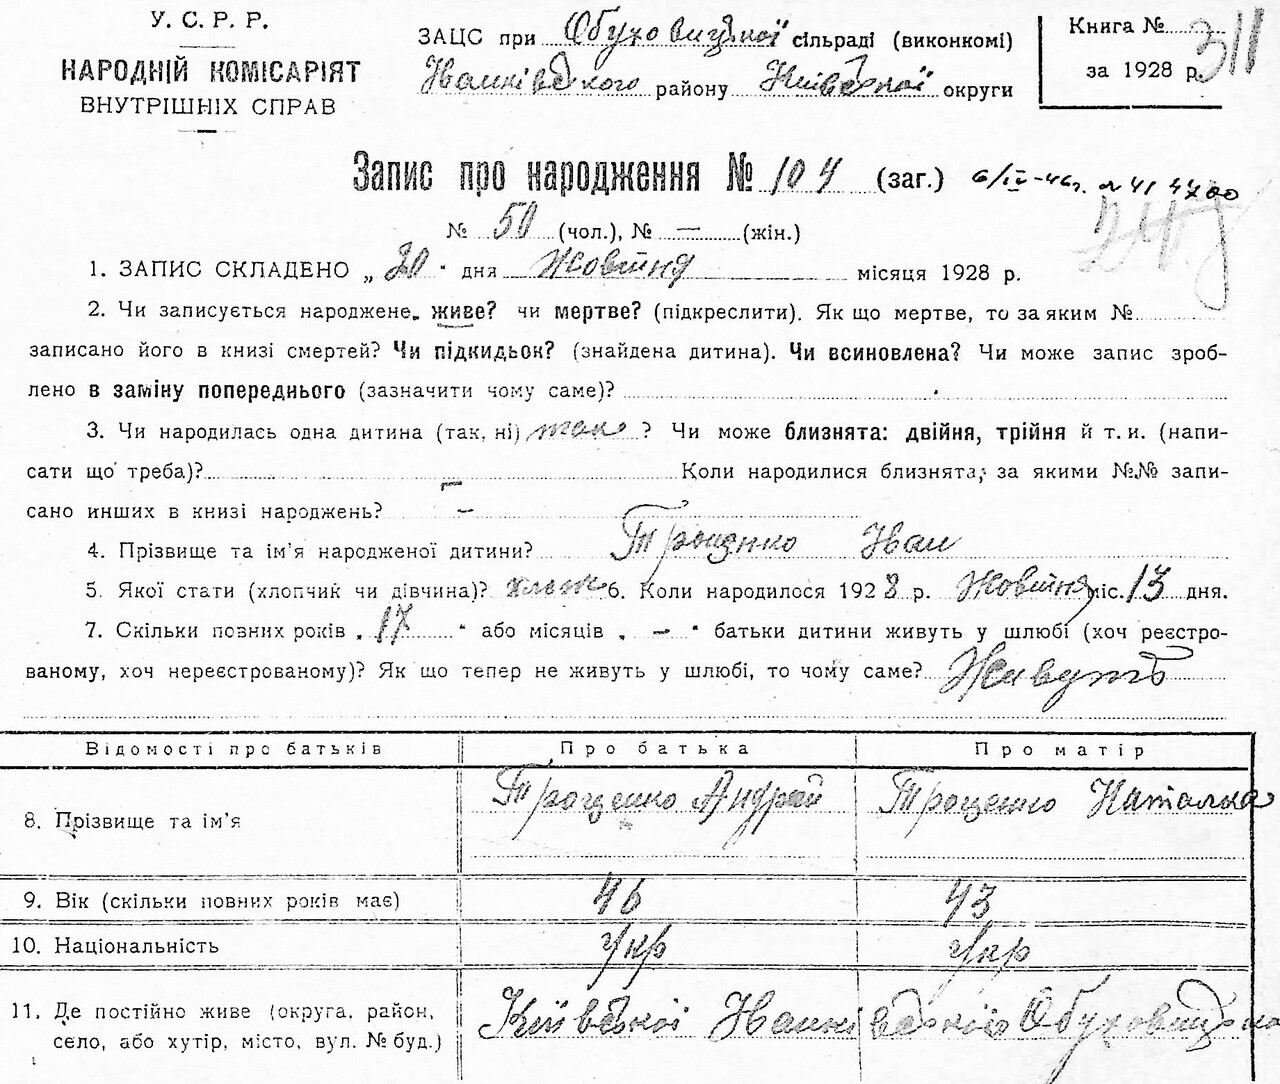 У. С. Р. Р.
НАРОДНІЙ КОМІСАРІЯТ
ВНУТРІШНІХ СПРАВ
ЗАЦС при Обуховицької сільраді (виконкомі)
Іванківського району Київської округи
Книга №
за 1928 р.
311
Запис про народження № 104 (заг.) 6/IV-46г.
№ 50 (чол.), № — (жін.)
1. ЗАПИС СКЛАДЕНО „ 20 " дня Жовтня місяця 1928 р.
2. Чи записується народжене живе? чи мертве? (підкреслити). Як що мертве, то за яким №
записано його в книзі смертей? Чи підкидьок? (знайдена дитина). Чи всиновлена? Чи може запис зроб-
лено в заміну попереднього (зазначити чому саме)?
3. Чи народилась одна дитина (так, ні) так ? Чи може близнята: двійня, трійня й т. и. (напи-
сати що треба)? Коли народилися близнята, за якими №№ запи-
сано инших в книзі народжень? —
4. Прізвище та ім'я народженої дитини? Троценко Іван
5. Якої стати (хлопчик чи дівчина)? хлоп 6. Коли народилося 1928 р. Жовтня міс. 13 дня.
7. Скільки повних років „ 17 " або місяців „ — " батьки дитини живуть у шлюбі (хоч реєстро-
ваному, хоч нереєстрованому)? Як що тепер не живуть у шлюбі, то чому саме? Живуть
Відомості про батьків Про батька Про матір
8. Прізвище та ім'я Троценко Андрей Троценко Наталка
9. Вік (скільки повних років має) 46 43
10. Національність Укр Укр
11. Де постійно живе (округа, район, Київської Іванківської Обуховицької
село, або хутір, місто, вул. № буд.)